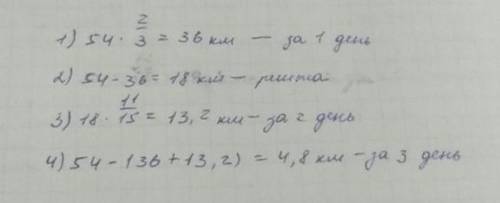 1) 54 · 2/3 = 36 км — за 1 день
2) 54 - 36 = 18 км — решта
3) 18 · 11/15 = 13,2 км — за 2 день
4) 54 - (36 + 13,2) = 4,8 км — за 3 день